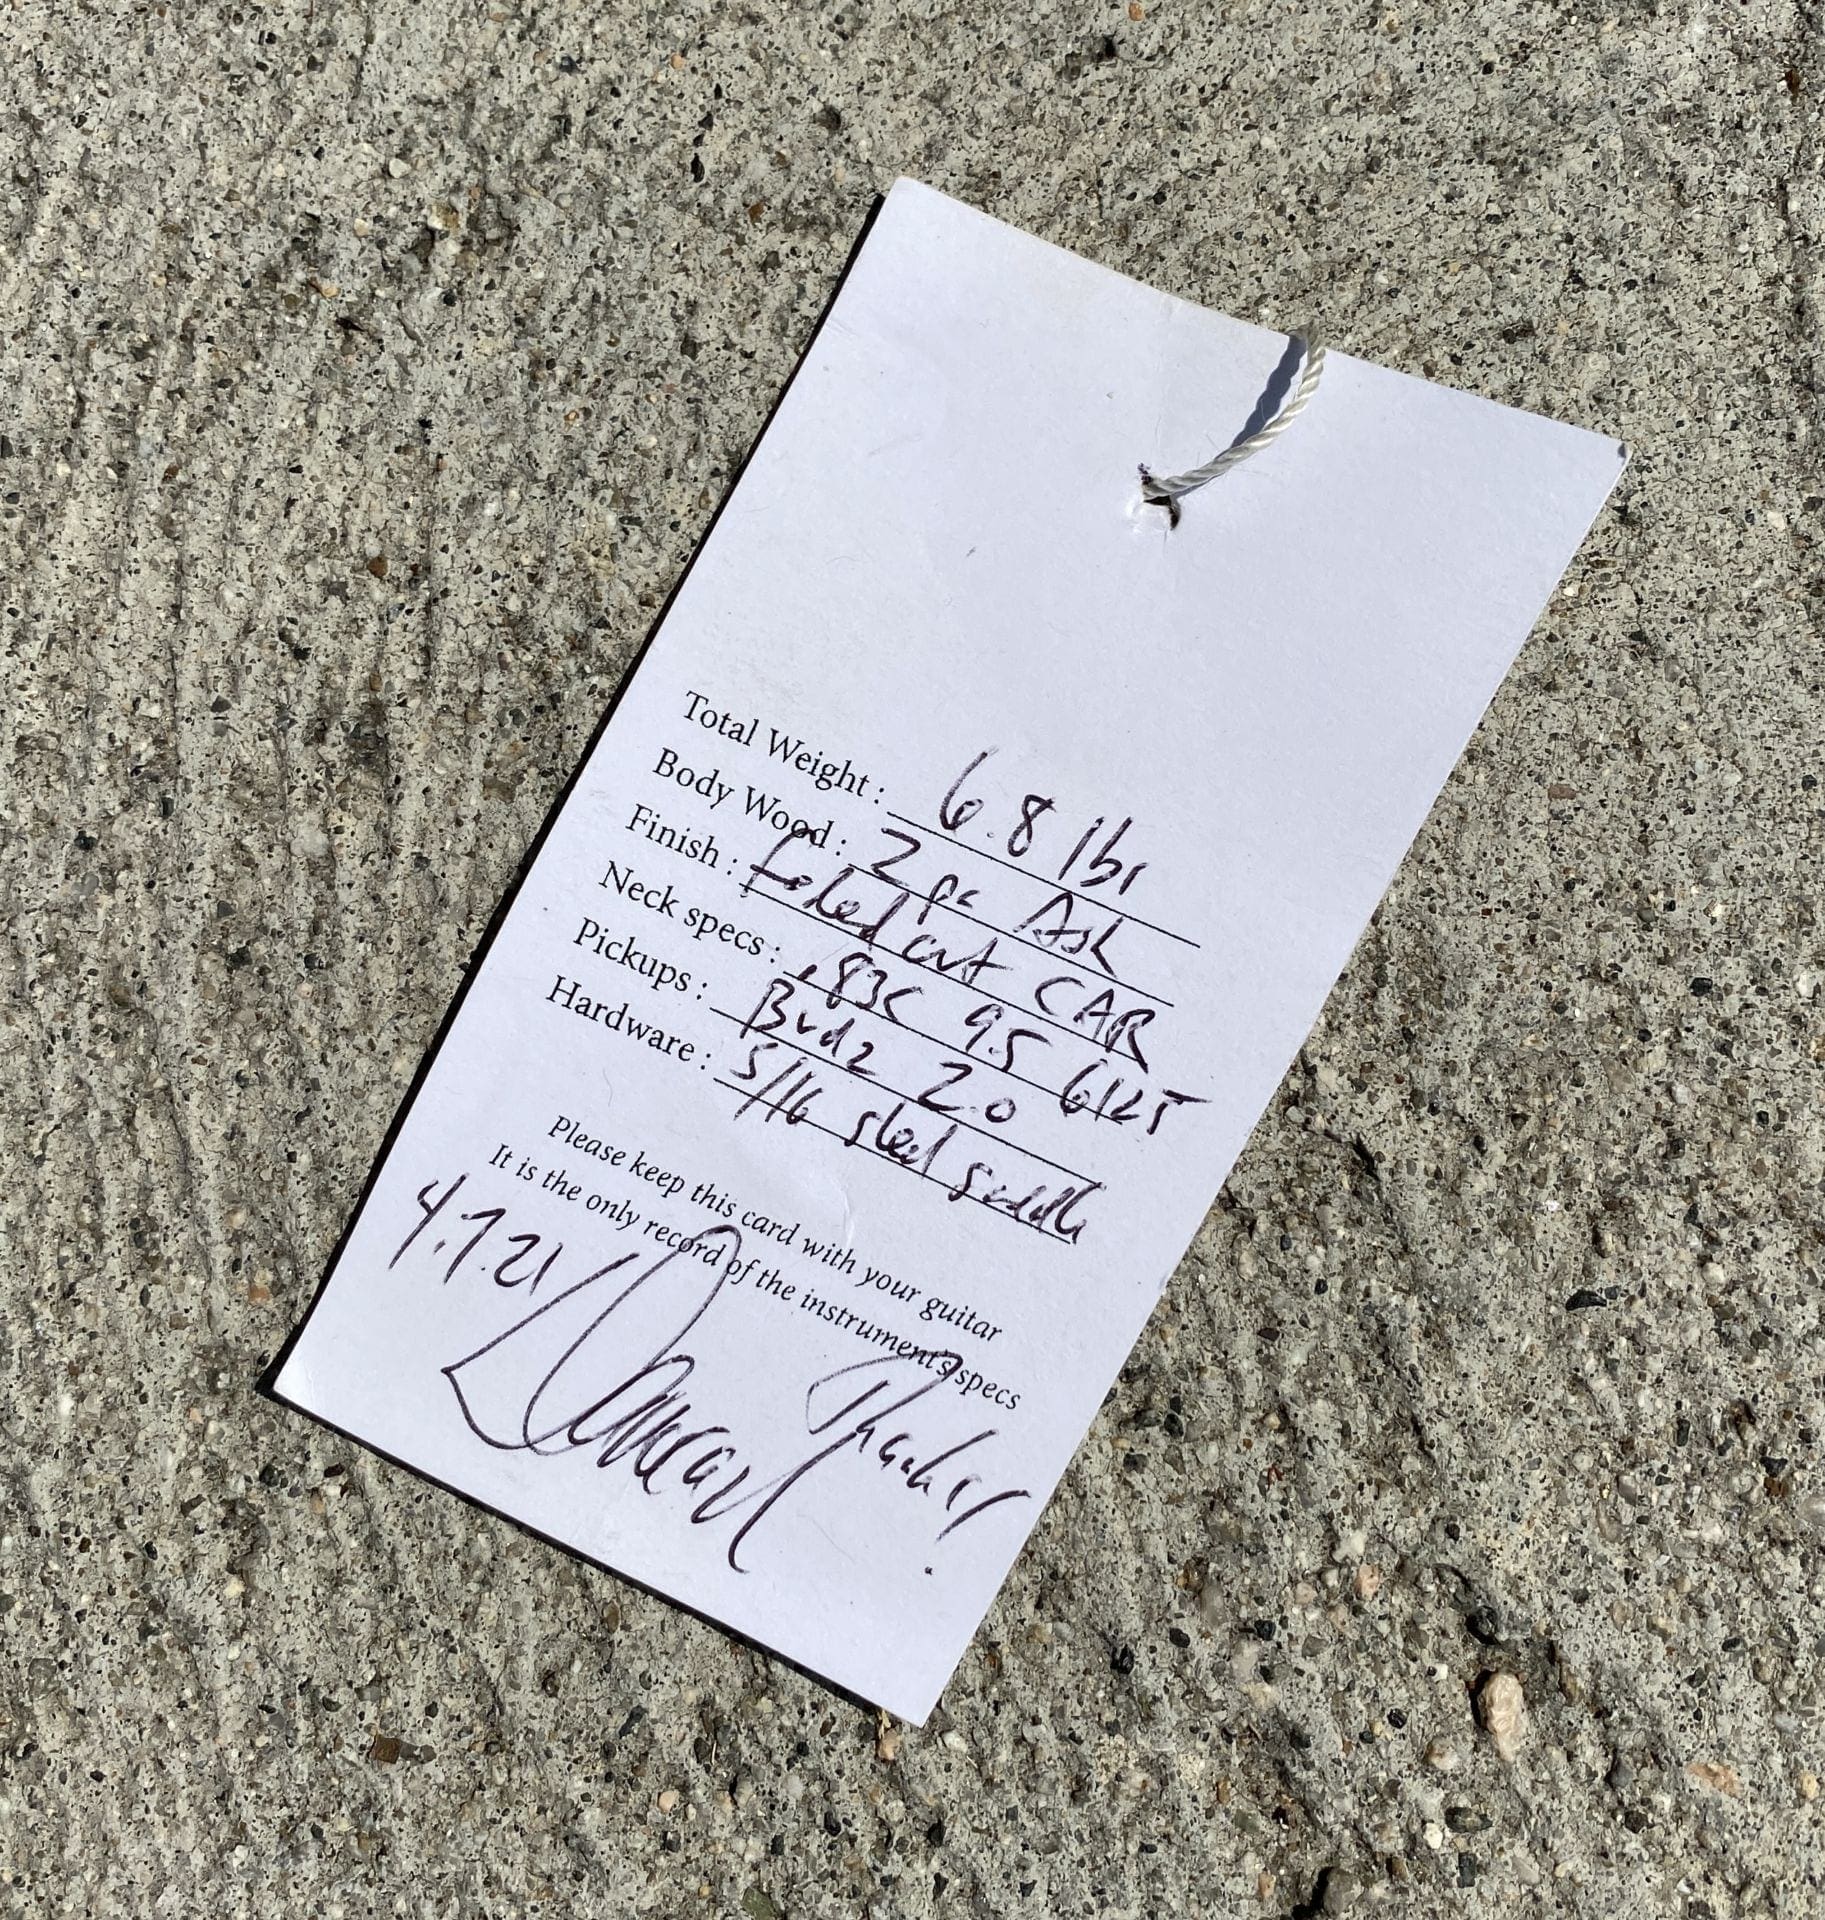 Total Weight : 6.8 lbs
Body Wood : 2 pc Ash
Finish : faded out CAR
Neck specs : .83C 9.5 6125
Pickups : 2.0
Hardware : 5/16 steel saddle
Please keep this card with your guitar
It is the only record of the instrument's specs
4.7.21
Thanks!